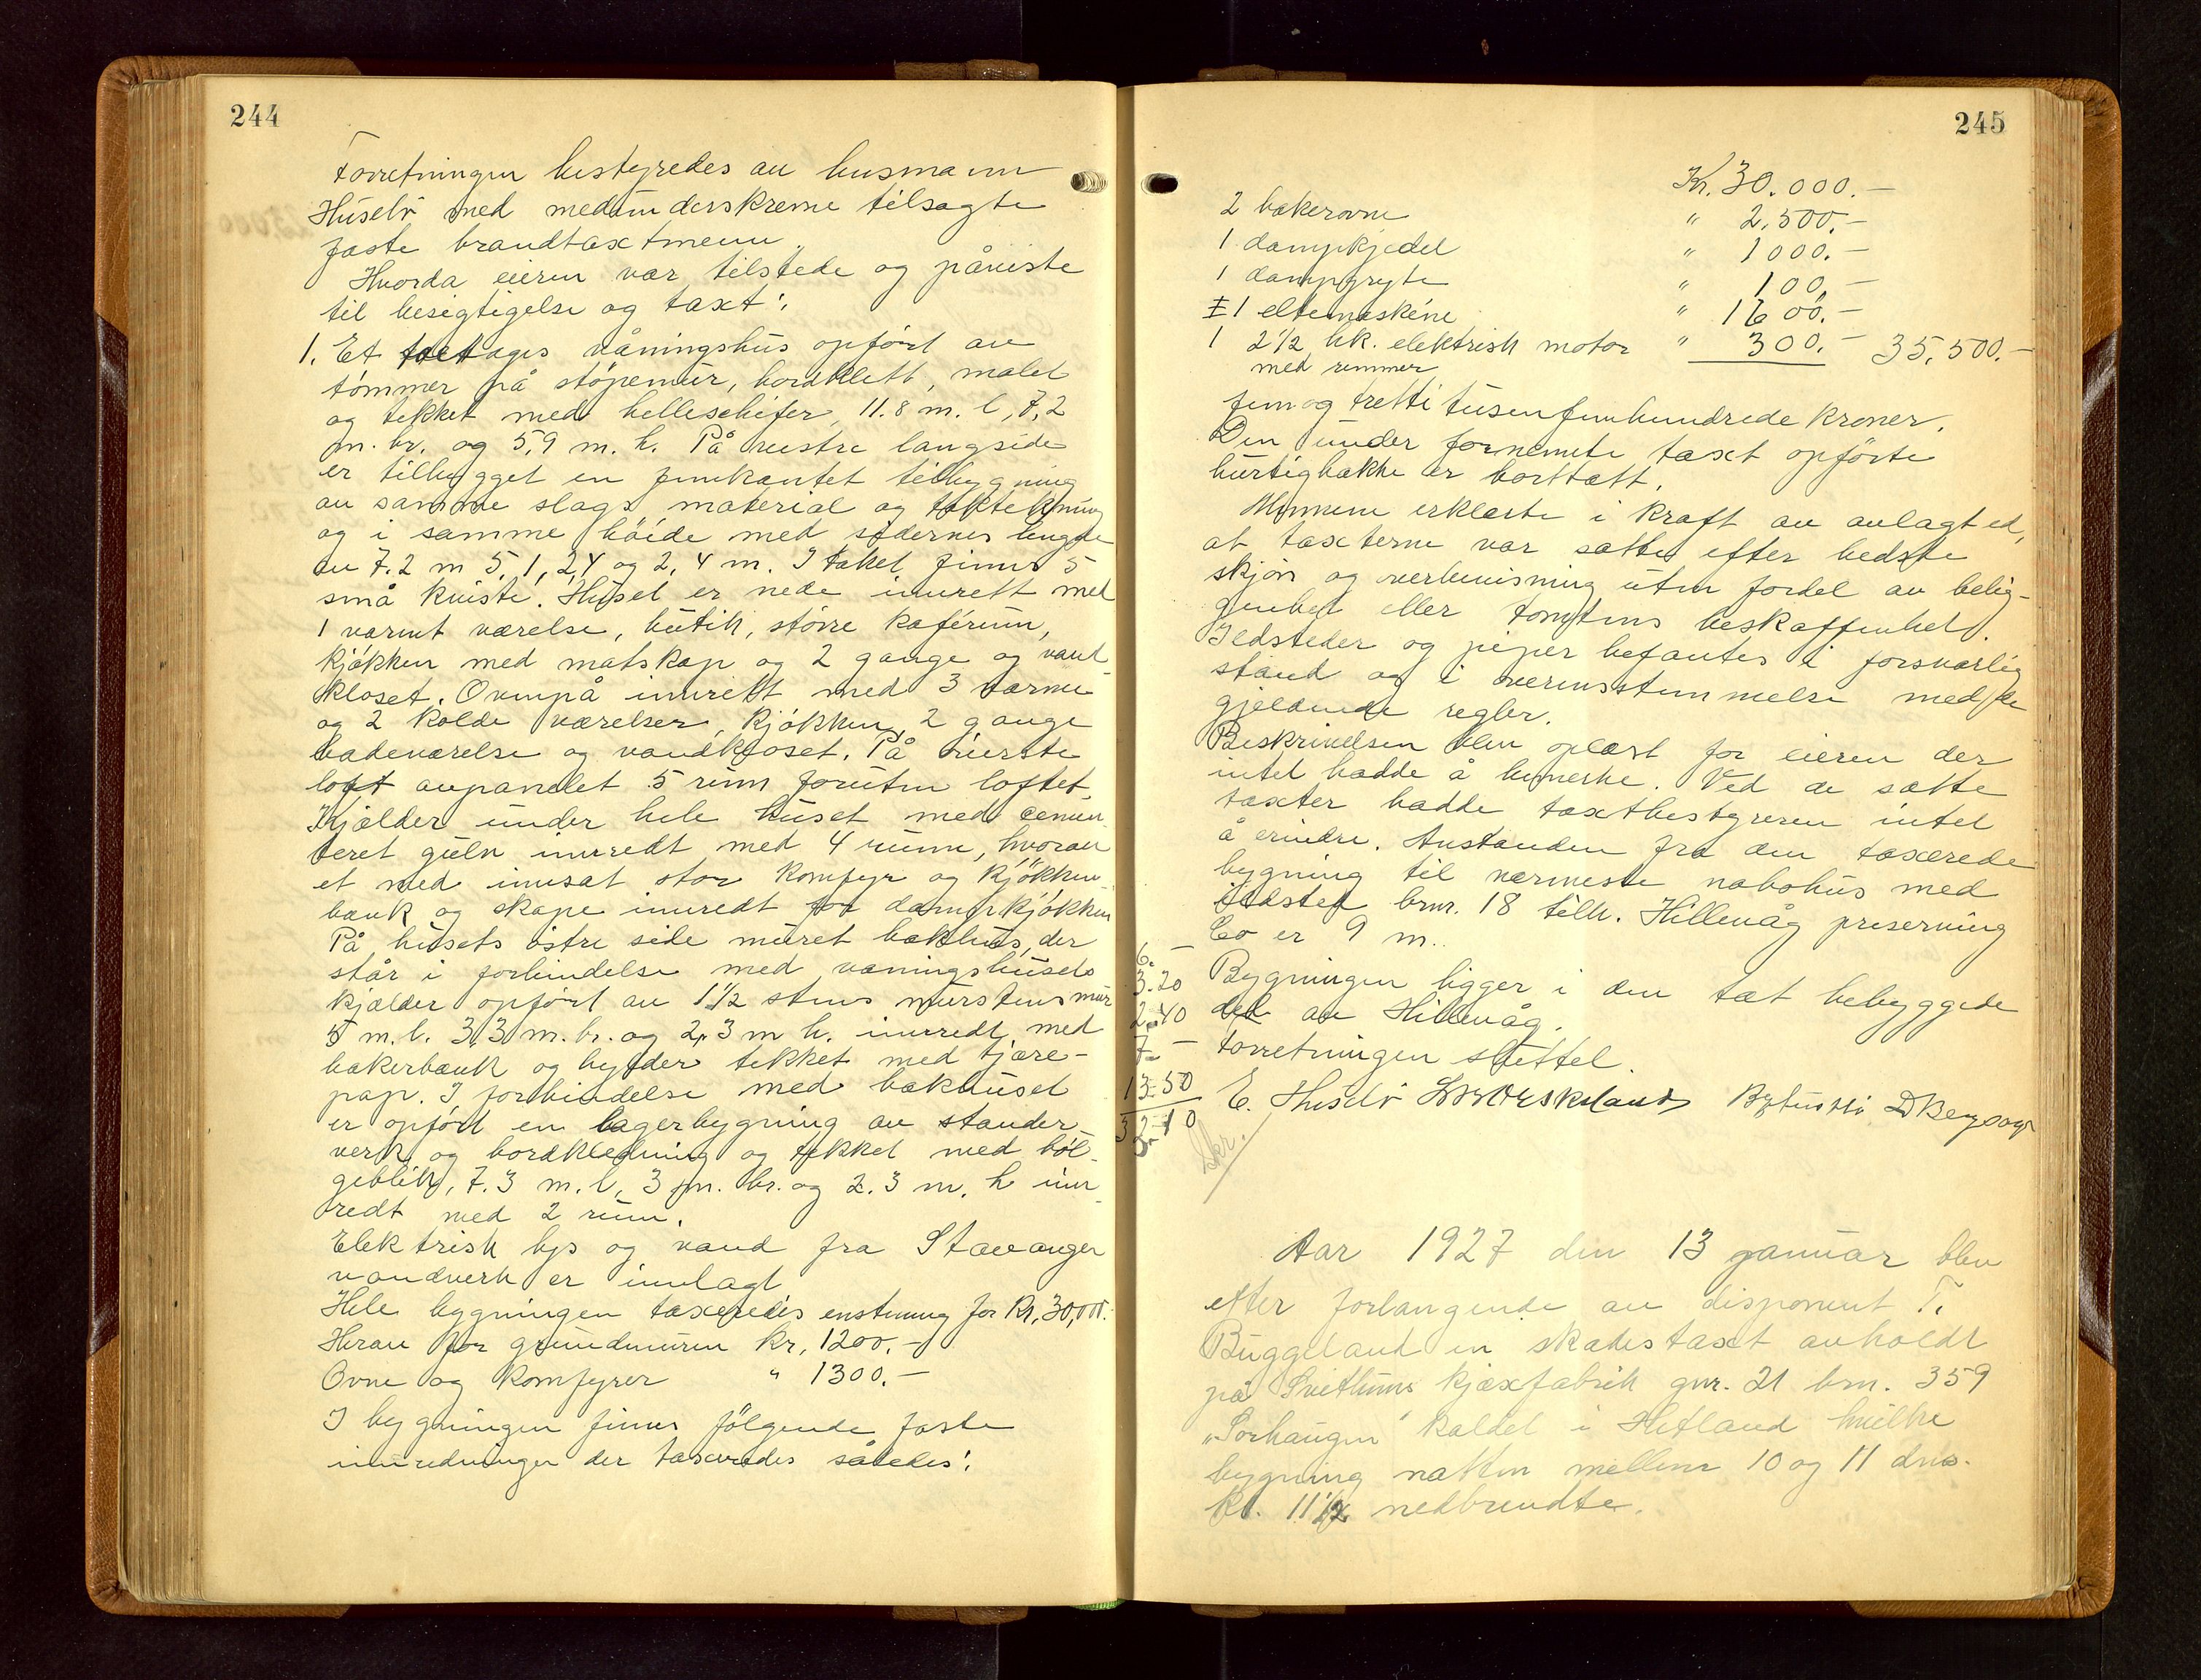 244
Forretningen bestyredes av husmann
Huselv med medunderskrevne tilsagte
faste brandtaxtmenn.
Hvorda eieren var tilstede og påviste
til besigtigelse og taxt:
1. Et toetages våningshus opført av
tömmer på stöpemur, bordklett, malet
og tekket med helleschifer, 11.8 m. l, 7,2
m. br. og 5,9 m. h. På vestre langside
er tilbygget en femkantet tilbygning
av samme slags material og taktekning
og i samme höide med sidernes lengde
av 7.2 m 5,1, 2,4 og 2,4 m. I taket finns 5
små kviste. Huset er nede innrett med
1 varmt værelse, butik, större kaférum,
kjökken med matskap og 2 gange og vand
kloset. Ovenpå innrett med 3 varme
og 2 kolde værelser, kjökken, 2 gange
badeværelse og vandkloset. På överste
loft avpanelet 5 rum foruten loftet.
Kjælder under hele huset med cemen-
teret gulv innredt med 4 rumm, hvorav
et med innsat stor komfyr og kjökken-
bænk og skape innredt for dampkjökken
På husets östre side muret bakhus, der
står i forbindelse med våningshusets
kjælder opført av 1½ stens murstensmur
5 m. l. 3,3 m. br. og 2,3 m h. innredt med
bakerbænk og hylder tekket med tjære-
pap. I forbindelse med bakhuset
er opfört en lagerbygning av stander-
verk og bordkledning og tekket med böl-
geblik, 7.3 m. l, 3 m. br. og 2.3 m. h inn-
redt med 2 rum.
Elektrisk lys og vand fra Stavanger
vandverk er innlagt
Hele bygningen taxeredes enstemmig for Kr. 30,000.-
Herav for grundmuren kr. 1200.-
Ovne og komfyrer " 1300.-
I bygningen finnes fölgende faste
innredninger der taxeredes således:
245
Kr. 30.000.-
2 bakerovne " 2,500.-
1 dampkjedel " 1000.-
1 dampgryte " 100.-
1 eltemaskine " 1600.-
1 2½ hk. elektrisk motor " 300.- 35,500.-
med remmer
femogtretti tusenfemhundrede kroner.
Den under fornevnte taxt opförte
hurtigbakke er borttatt.
Mennene erklærte i kraft av avlagt ed,
at taxterne var satte efter bedste
skjön og overbevisning uten fordel av belig-
genhet eller tomtens beskaffenhet.
Ildsteder og piper befantes i forsvarlig
stand og i overensstemmelse med de
gjeldende regler.
Beskrivelsen blev oplæst for eieren der
intet hadde å bemerke. Ved de satte
taxter hadde taxtbestyreren intet
å erindre. Avstanden fra den taxerede
bygning til nærmeste nabohus med
ildsted brnr. 18 tilh. Hillevåg preserving
Co er 9 m.
Bygningen ligger i den tæt bebyggede
del av Hillevåg.
Forretningen sluttet.
6.-
3.20
2.40
7.-
13.50
32.10
Skr.
E. Huselv
Aar 1927 den 13 januar blev
efter forlangende av disponent T.
Buggeland en skadestaxt avholdt
på Svithuns kjæxfabrik gnr. 21 brn. 359
„Sorhaugen" kaldet i Hetland hvilke
bygning natten mellem 10 og 11 dns.
Kl. 11½ nedbrendte.